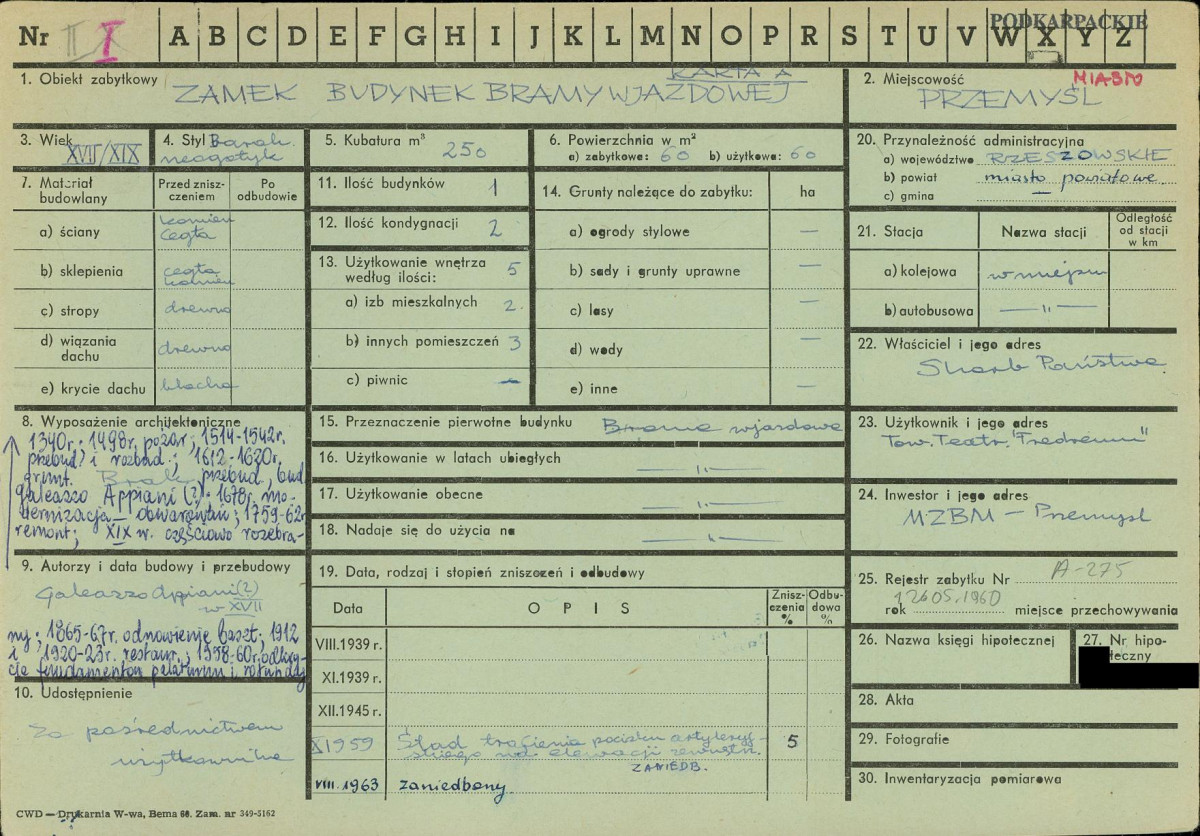 PODKARPACKIE
Nr I A B C D E F G H I J K L M N O P R S T U V W X Y Z
KARTA A
1. Obiekt zabytkowy ZAMEK BUDYNEK BRAMY WJAZDOWEJ
2. Miejscowość MIASTO
PRZEMYŚL
3. Wiek XVII/XIX
4. Styl Barok.
neogotyk
5. Kubatura m³ 250
6. Powierzchnia w m²
a) zabytkowe: 60 b) użytkowa: 60
20. Przynależność administracyjna
a) województwo RZESZOWSKIE
b) powiat miasto powiatowe
c) gmina —
7. Materiał budowlany
Przed zniszczeniem
Po odbudowie
a) ściany kamień
cegła
b) sklepienia cegła
kamień
c) stropy drewno
d) wiązania dachu drewno
e) krycie dachu blacha
11. Ilość budynków 1
12. Ilość kondygnacji 2
13. Użytkowanie wnętrza według ilości: 5
a) izb mieszkalnych 2
b) innych pomieszczeń 3
c) piwnic —
14. Grunty należące do zabytku: ha
a) ogrody stylowe —
b) sady i grunty uprawne —
c) lasy —
d) wody —
e) inne —
21. Stacja
Nazwa stacji
Odległość od stacji w km
a) kolejowa w miejscu
b) autobusowa —"—
22. Właściciel i jego adres
Skarb Państwa
8. Wyposażenie architektoniczne
1340r.; 1498r. pożar; 1514-1542r.
przebud. i rozbud.; 1612-1630r.
grunt. Brak przebud., bud.
Galeazzo Appiani (?); 1678r. mo-
dernizacja obwarowań; 1759-62r.
remont; XIX w. częściowo rozebra-
9. Autorzy i data budowy i przebudowy
Galeazzo Appiani (?)
w XVII
ny; 1865-67r. odnowienie baszt; 1912
i 1920-23r. restaur.; 1958-60r. odkry-
cie fundamentów palatium i rotundy
10. Udostępnienie
za pośrednictwem
użytkownika
15. Przeznaczenie pierwotne budynku Brama wjazdowa
16. Użytkowanie w latach ubiegłych —"—
17. Użytkowanie obecne —"—
18. Nadaje się do użycia na —"—
19. Data, rodzaj i stopień zniszczeń i odbudowy
Data
OPIS
Zniszczenia %
Odbudowa %
VIII.1939 r.
XI.1939 r.
XII.1945 r.
XI 1959 Ślad trafienia pocisku artyleryj-
skiego na elewacji zewnętrz. 5
ZANIEDB.
VIII.1963 zaniedbany
23. Użytkownik i jego adres
Tow. Teatr. "Fredreum"
24. Inwestor i jego adres
MZBM — Przemyśl
25. Rejestr zabytku Nr A-275
rok 12.05.1960 miejsce przechowywania
26. Nazwa księgi hipotecznej
27. Nr hipoteczny
28. Akta
29. Fotografie
30. Inwentaryzacja pomiarowa
CWD — Drukarnia W-wa, Bema 60. Zam. nr 349-5162